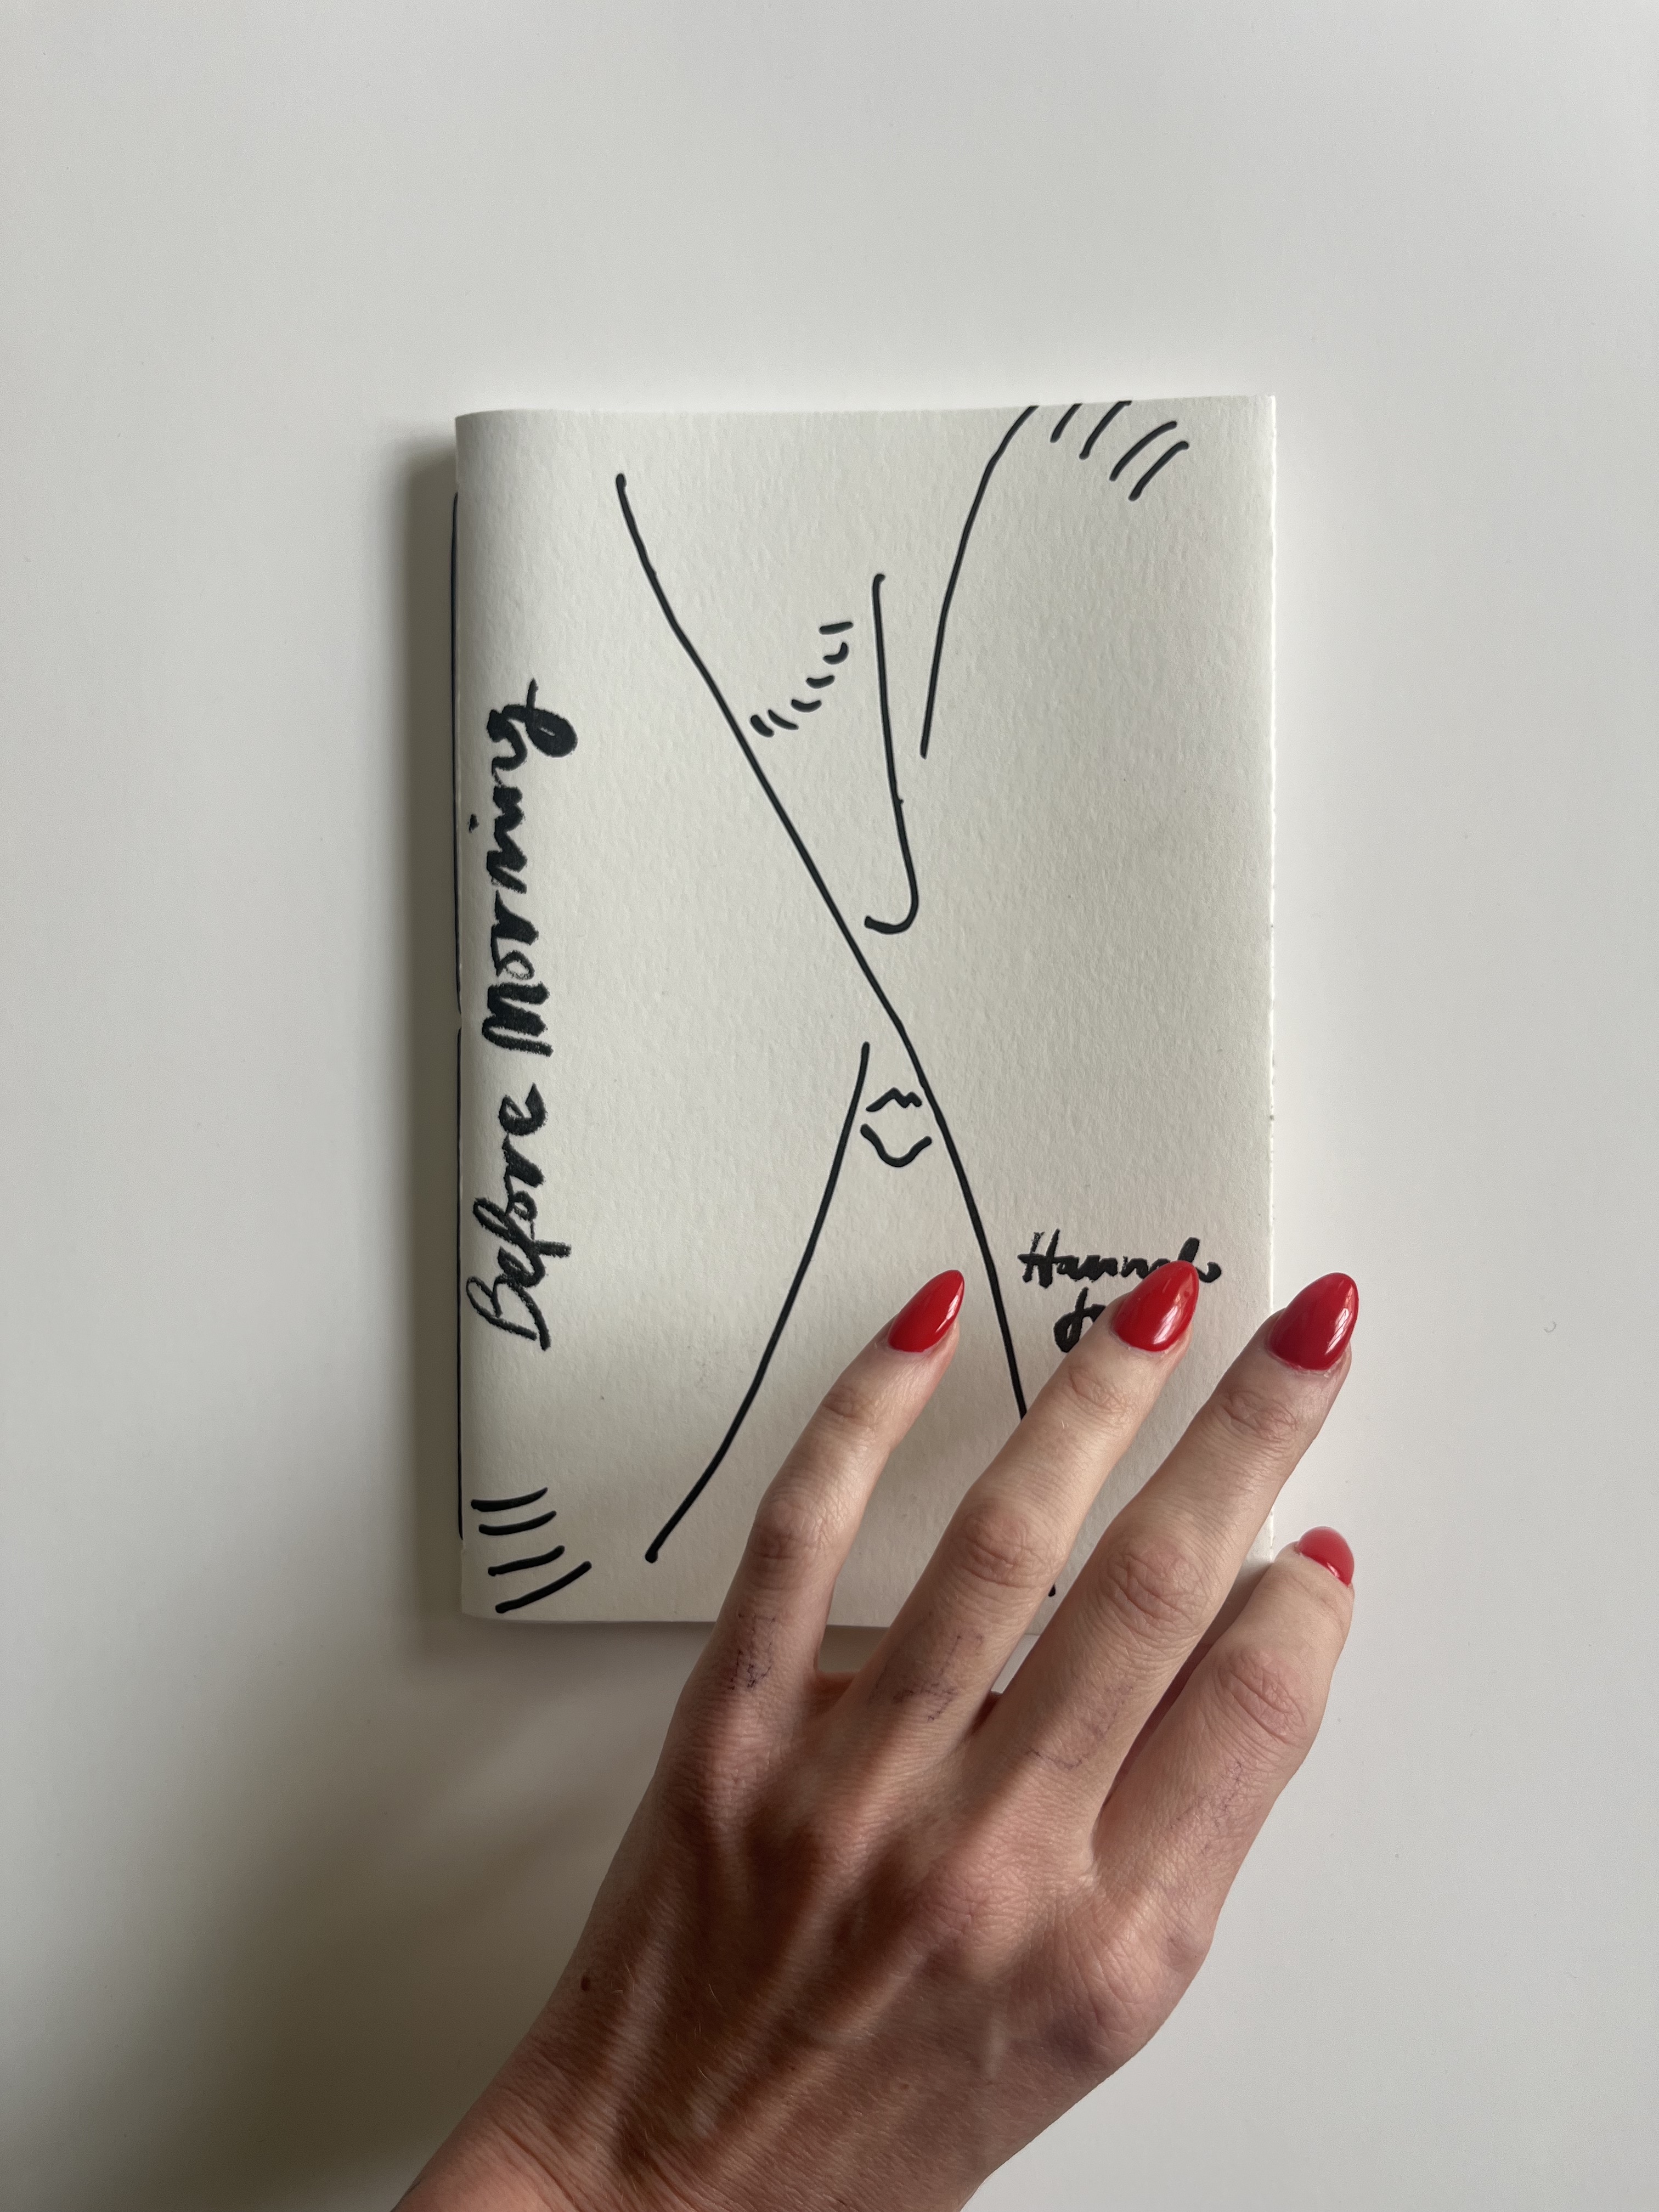 Before Morning
Hannah